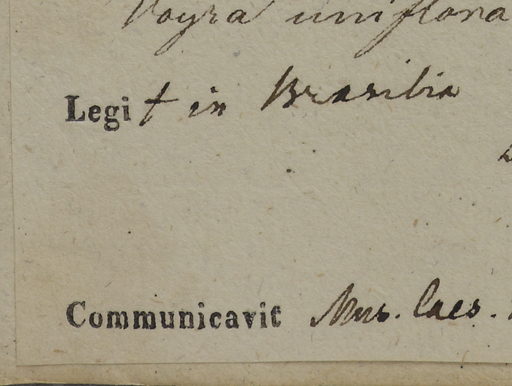 Voyra uniflora
Legit in Brasilia
Communicavit Mus. Caes.